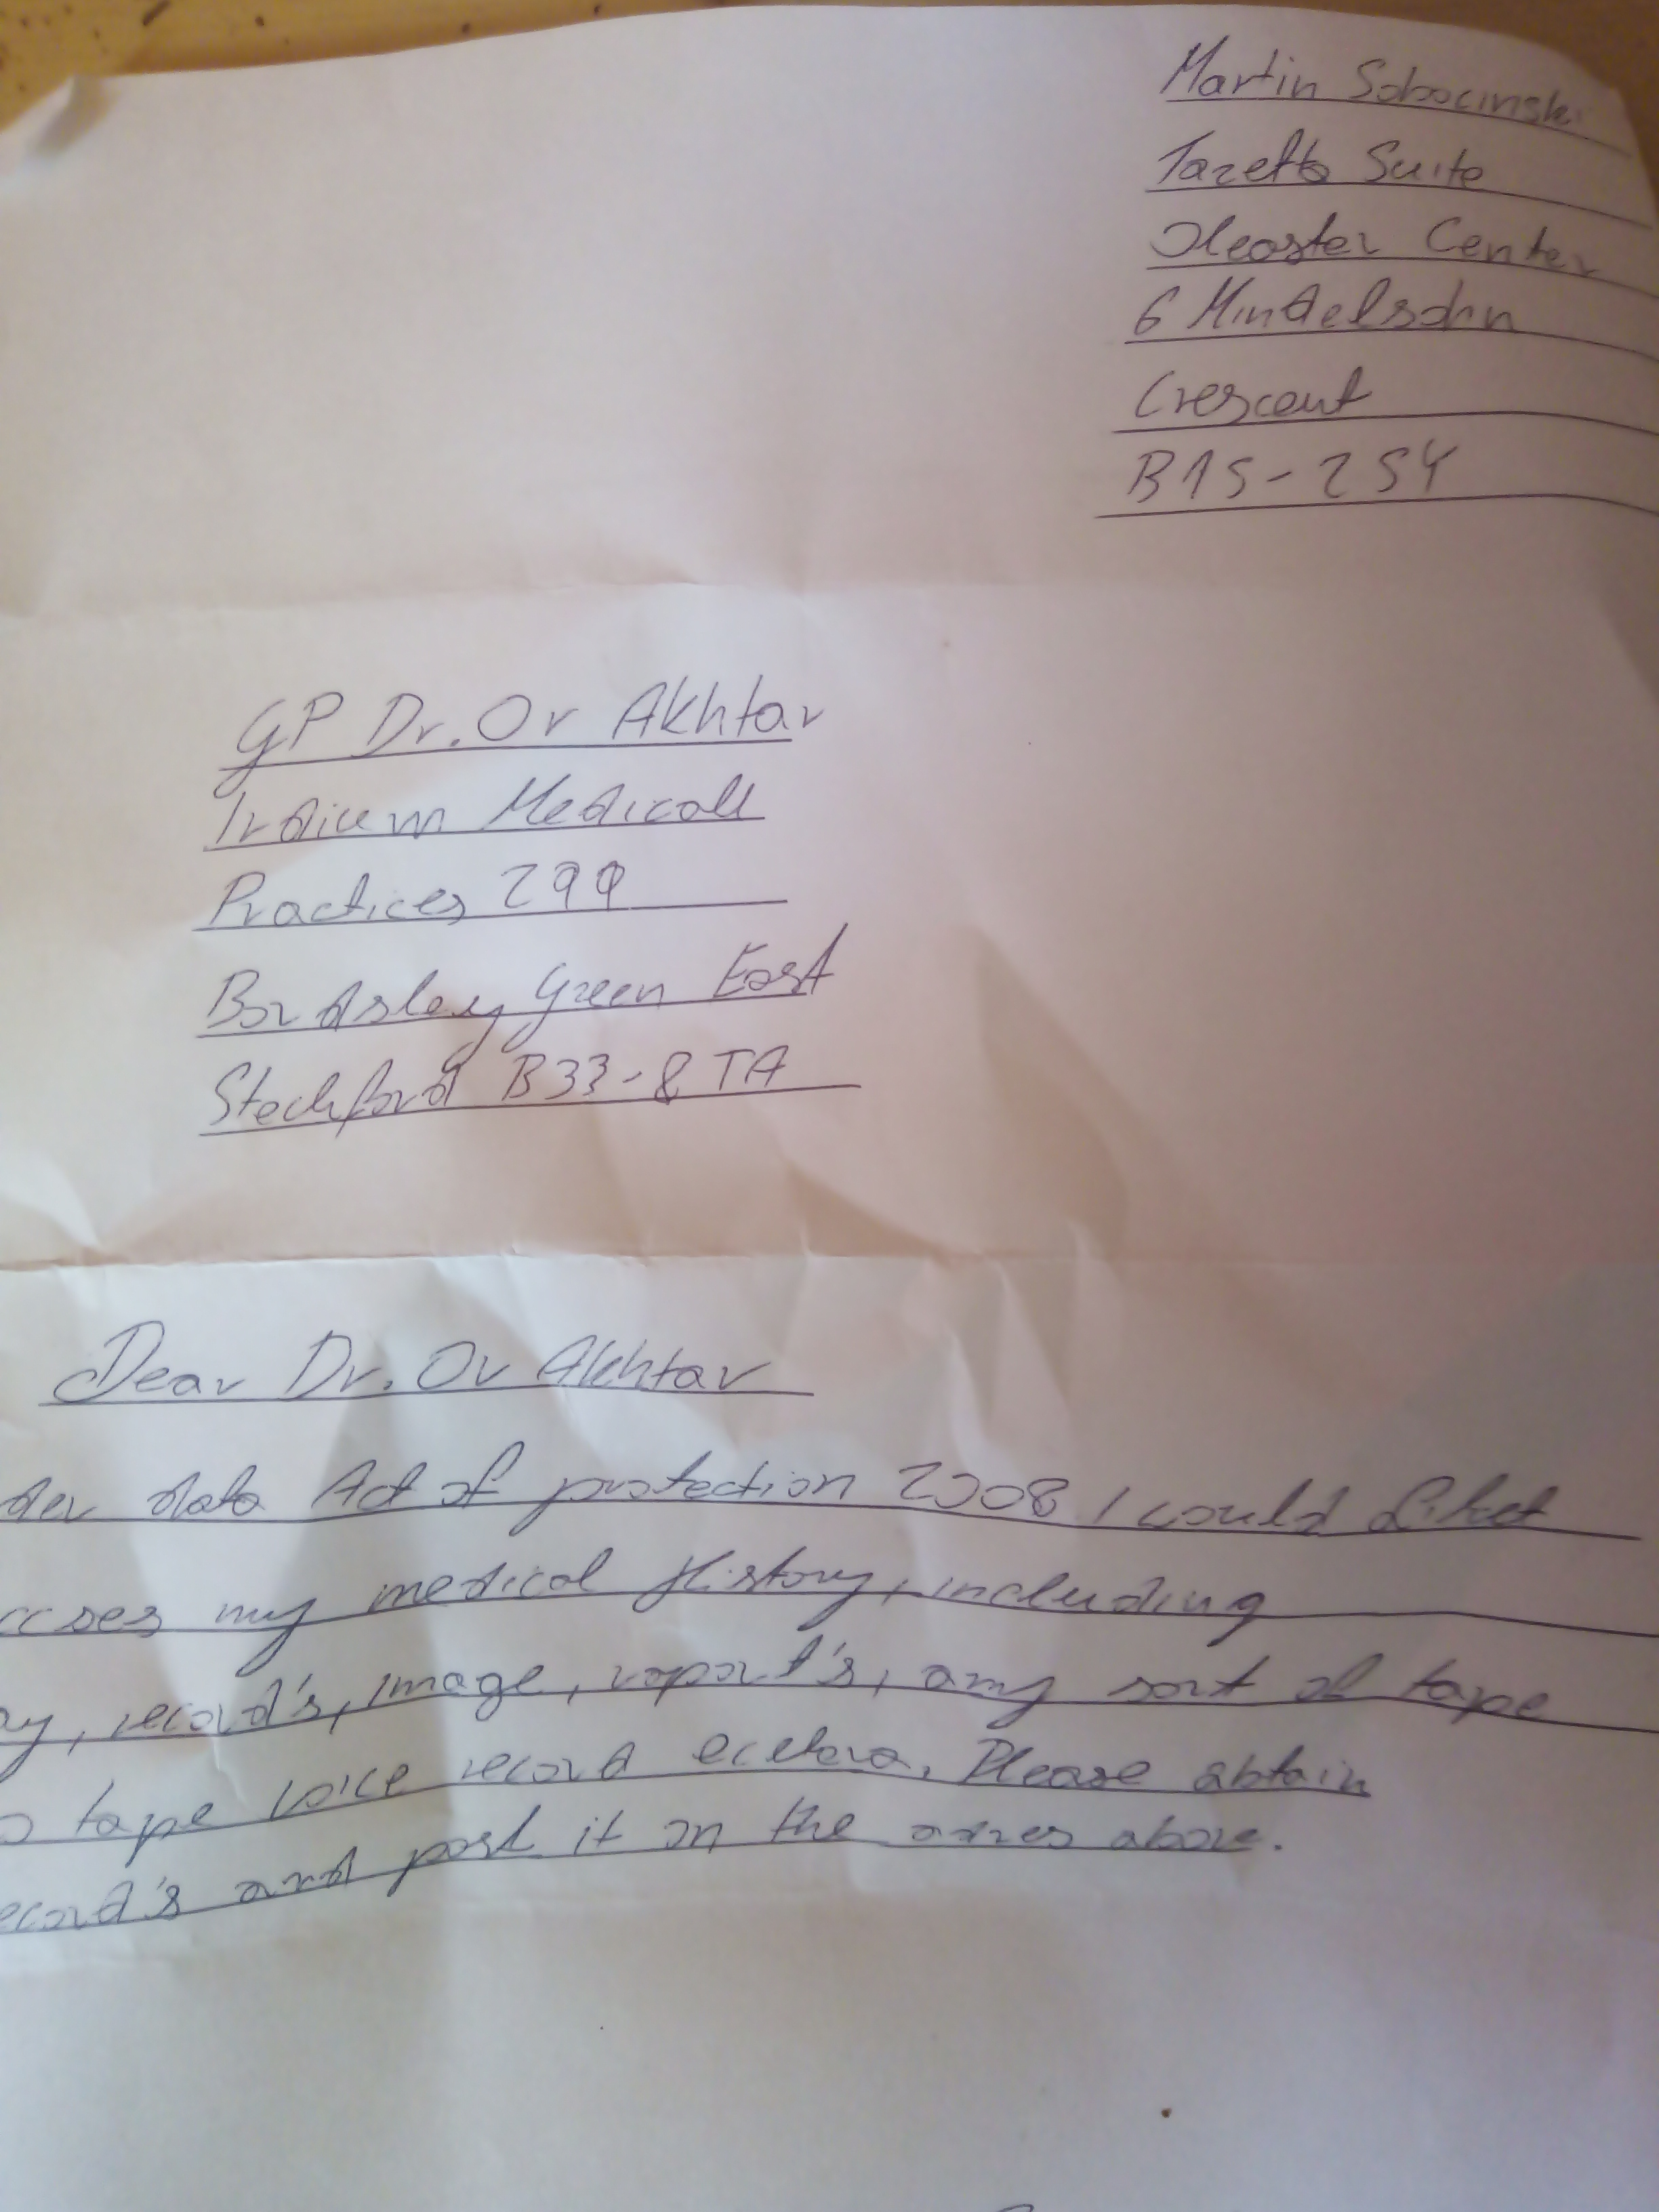 Martin Sobocinski
Tazetta Suite
Oleaster Center
6 Mindelsohn
Crescent
B15-2SY
GP Dr. Or Akhtar
Irdium Medicall
Practices 299
Bordsley Green East
Stechford B33-8TA
Dear Dr. Or Akhtar
der data Act of protection 2008 I could
my medical History, including
record's, image, raport's, any sort of tape
tape voice record ecetera. Please obtain
ecord's and post it on the adres above.